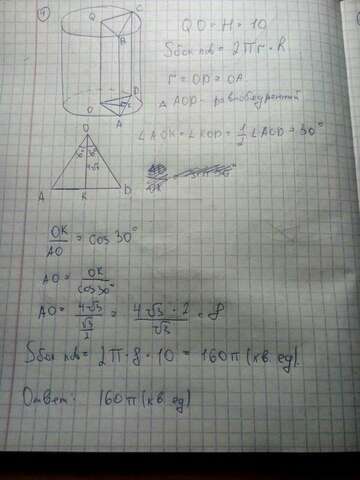 1
Q C
B
O D
A
QO = H = 10
Sбок пов = 2πr · h
r = OD = OA
△ AOD - равнобедренный
∠AOK = ∠KOD = 1/2 ∠AOD = 30°
O
30° 30°
4√3
A K D
OK/AO = cos 30°
AO = OK/cos30°
AO = 4√3/(√3/2) = 4√3 · 2/√3 = 8
Sбок пов = 2π · 8 · 10 = 160π (кв. ед).
Ответ: 160π (кв. ед)